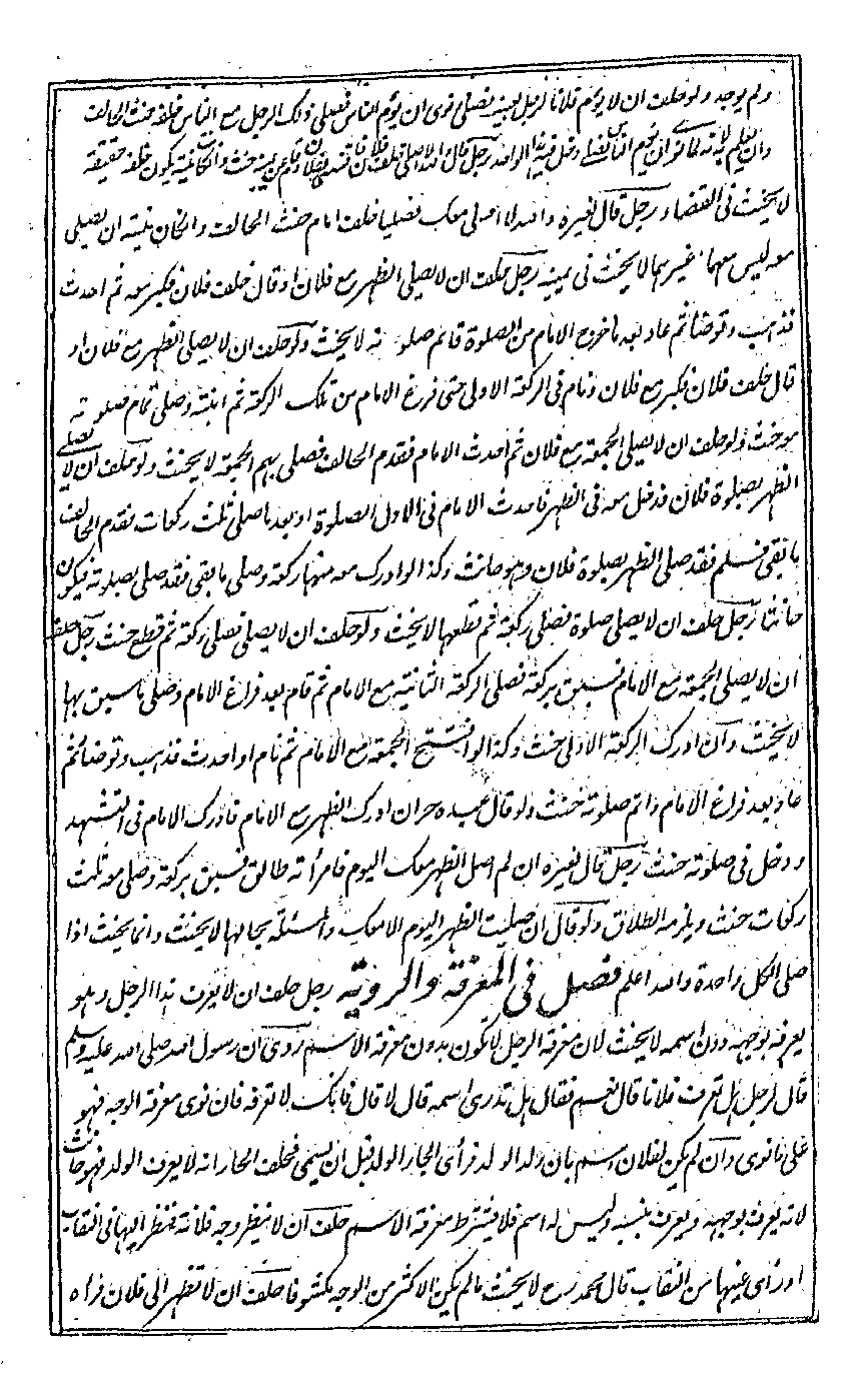 ولم يوجد ولو حلف ان لا يؤم فلانا لرجل بعينه فصلى ونوى ان يؤم الناس فصلى ذلك الرجل مع الناس خلفه حنث الحالف
وان لم يعلم به لانه لما نوى ان يؤم الناس دخل فيه هذا الواحد رجل قال والله لا اصلى خلف فلان فقام عن يمينه حنث وان كان نيته ان يكون خلفه حقيقة
لا يحنث فى القضاء رجل قال لغيره والله لا اصلى معك فصليا خلف امام حنث الحالف وان كان نيته ان يصلى
معه ليس معهما غيرهما لا يحنث فى يمينه رجل حلف ان لا يصلى الظهر مع فلان او قال خلف فلان فكبر معه ثم احدث
فذهب وتوضأ ثم عاد بعد ما خرج الامام من الصلوة فاتم صلوته لا يحنث ولو حلف ان لا يصلى الظهر مع فلان او
قال خلف فلان فكبر مع فلان ونام فى الركعة الاولى حتى فرغ الامام من تلك الركعة ثم انتبه وصلى تمام صلوته
معه حنث ولو حلف ان لا يصلى الجمعة مع فلان ثم احدث الامام فقدم الحالف فصلى بهم الجمعة لا يحنث ولو حلف ان لا يصلى
الظهر بصلوة فلان فدخل معه فى الظهر فاحدث الامام فى الاول الصلوة او بعد ما صلى ثلث ركعات فقدم الحالف
ما بقى فسلم فقد صلى الظهر بصلوة فلان وهو حانث وكذا لو ادرك معه منها ركعة وصلى ما بقى فقد صلى بصلوته فيكون
حانثا رجل حلف ان لا يصلى صلوة فصلى ركعة ثم قطعها لا يحنث ولو حلف ان لا يصلى فصلى ركعة ثم قطع حنث رجل حلف
ان لا يصلى الجمعة مع الامام فسبق بركعة فصلى الركعة الثانية مع الامام ثم قام بعد فراغ الامام وصلى ما سبق بها
لا يحنث وان ادرك الركعة الاولى حنث وكذا لو افتتح الجمعة مع الامام ثم نام او احدث فذهب وتوضأ ثم
عاد بعد فراغ الامام واتم صلوته حنث ولو قال عبده حر ان ادرك الظهر مع الامام فادرك الامام فى التشهد
ودخل فى صلوته حنث رجل قال لغيره ان لم اصل الظهر معك اليوم فامرأته طالق فسبق بركعة وصلى معه ثلث
ركعات حنث ويلزمه الطلاق ولو قال ان صليت الظهر اليوم الا معك والمسئلة بحالها لا يحنث وانما يحنث اذا
صلى الكل واحدة والله اعلم فصل فى المعرفة والرؤية رجل حلف ان لا يعرف هذا الرجل وهو
يعرفه بوجهه دون اسمه لا يحنث لان معرفة الرجل لا تكون بدون معرفة الاسم روى ان رسول الله صلى الله عليه وسلم
قال لرجل هل تعرف فلانا قال نعم فقال هل تدرى اسمه قال لا قال فانك لا تعرفه فان نوى معرفة الوجه فهو
على ما نوى وان لم يكن لفلان اسم بان ولد الولد فرأى الجار الولد قبل ان يسمى فحلف الجار انه لا يعرف الولد فهو حانث
لانه يعرف بوجهه ويعرف بنسبه وليس له اسم فلا يشترط معرفة الاسم حلف ان لا ينظر وجه فلانة فنظر اليها فى النقاب
او رأى عينها من النقاب قال محمد رح لا يحنث ما لم يكن الاكثر من الوجه مكشوفا حلف ان لا تنظر الى فلان فراه